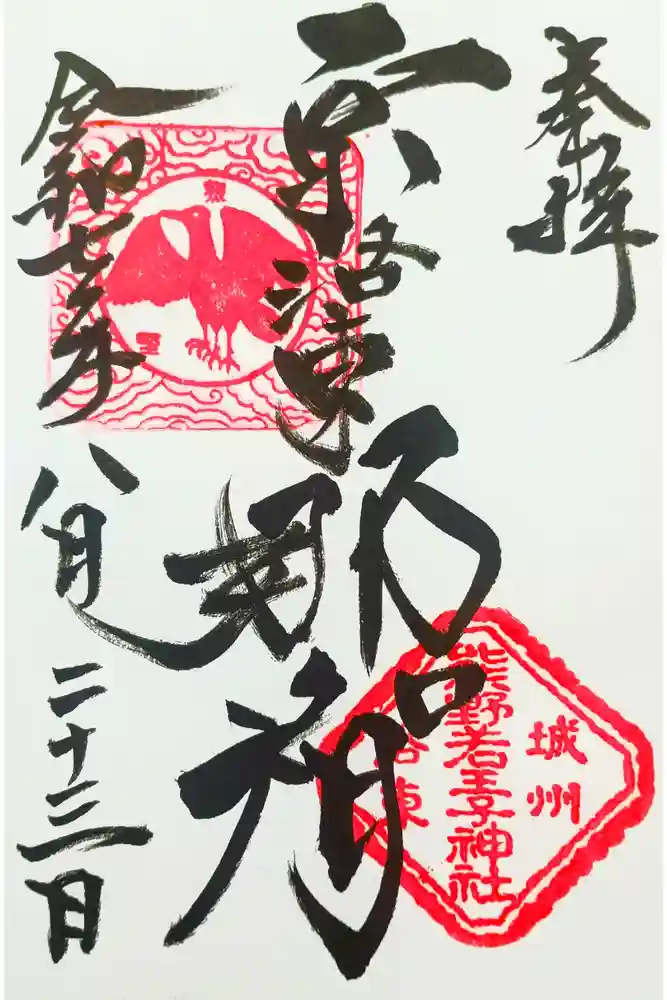 奉拝
京洛東
那智
令和七年八月二十三日
城州
熊野若王子神社
洛東